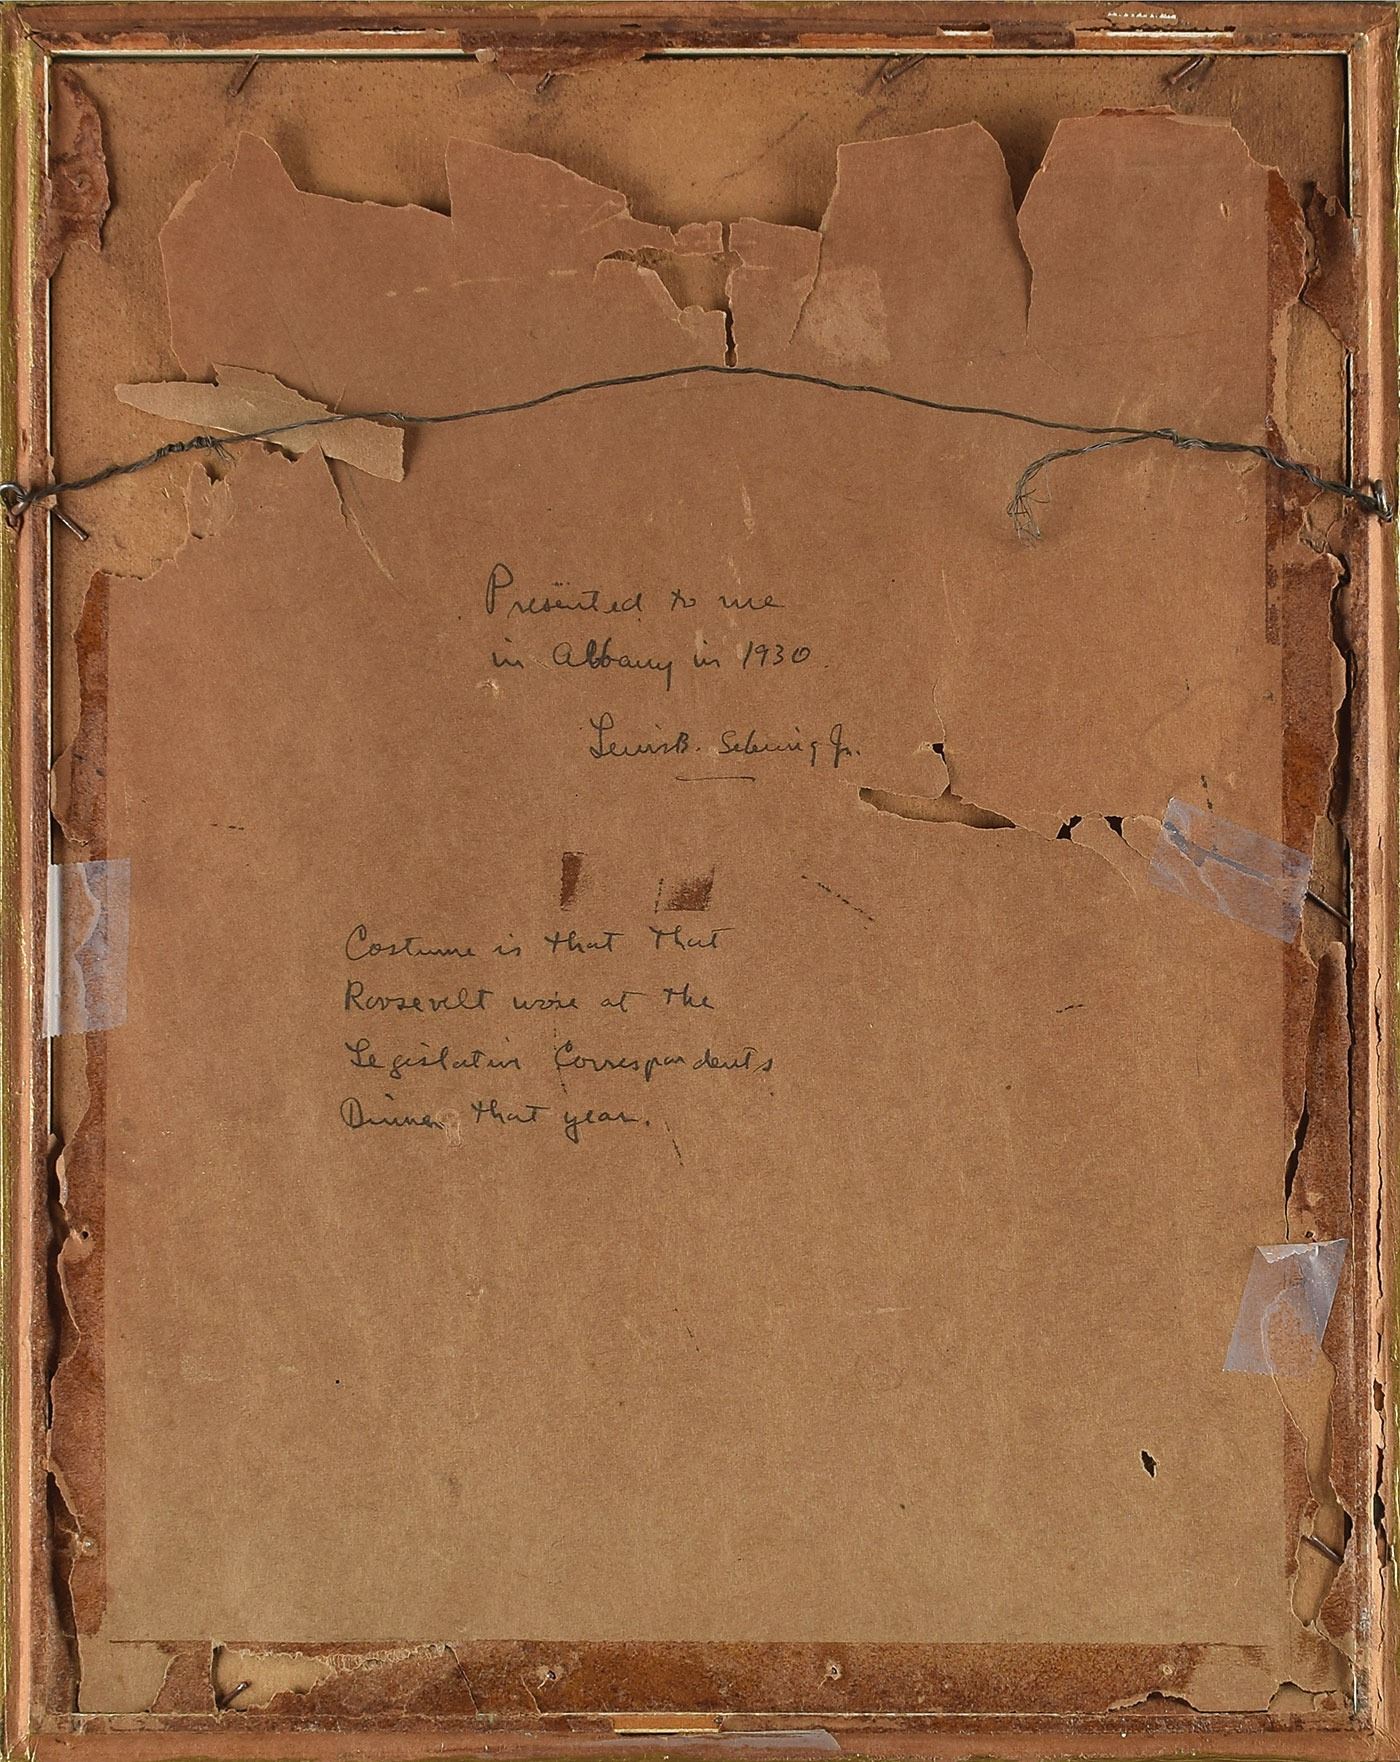 Presented to me
in Albany in 1930.
Lewis B. Sebring Jr.
Costume is that that
Roosevelt wore at the
Legislative Correspondents
Dinner that year.